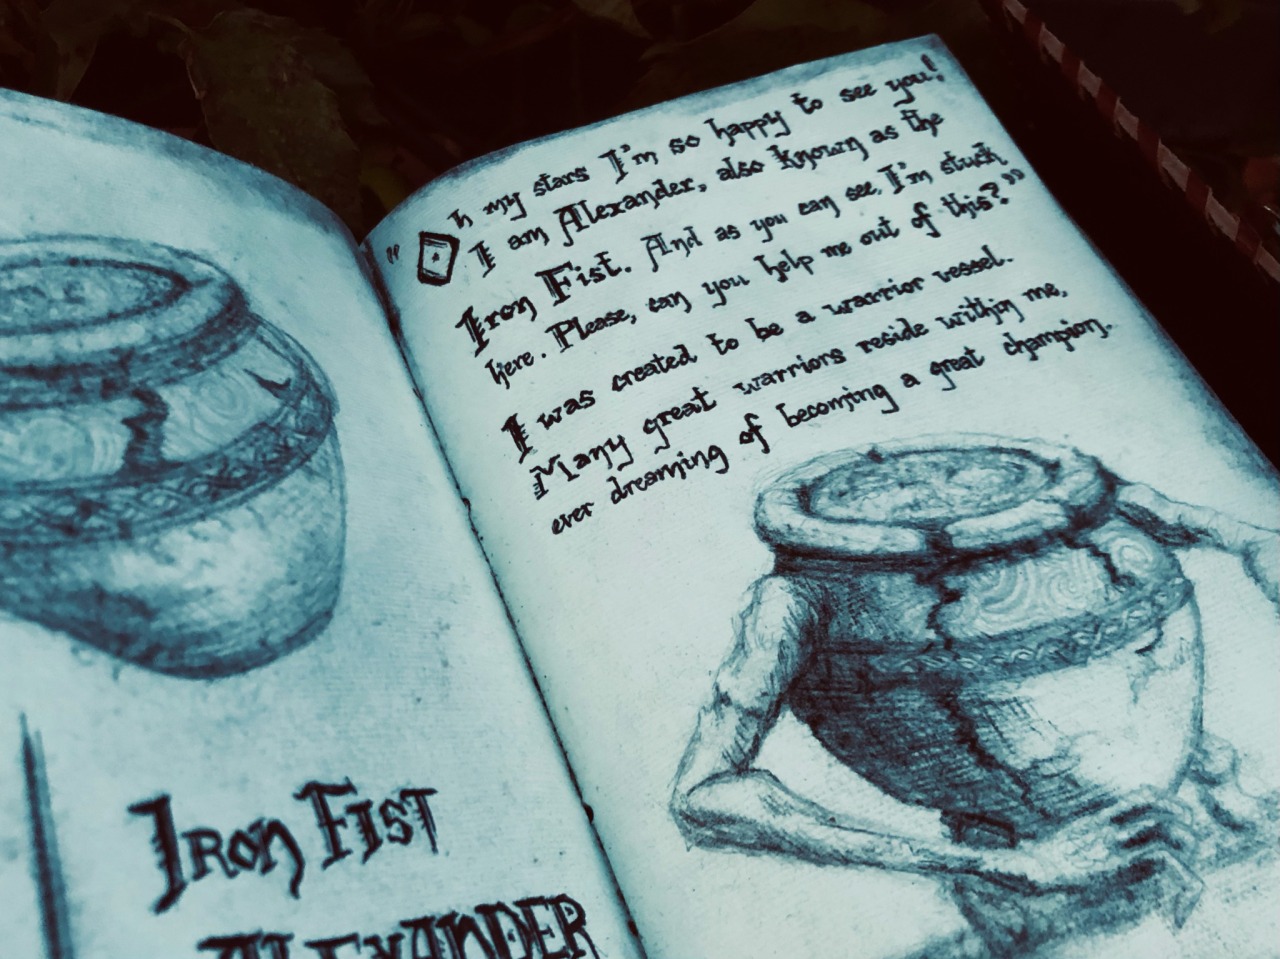 Iron Fist
Alexander
"Oh my stars I'm so happy to see you!
I am Alexander, also known as the
Iron Fist. And as you can see, I'm stuck
here. Please, can you help me out of this?"
I was created to be a warrior vessel.
Many great warriors reside within me,
ever dreaming of becoming a great champion.